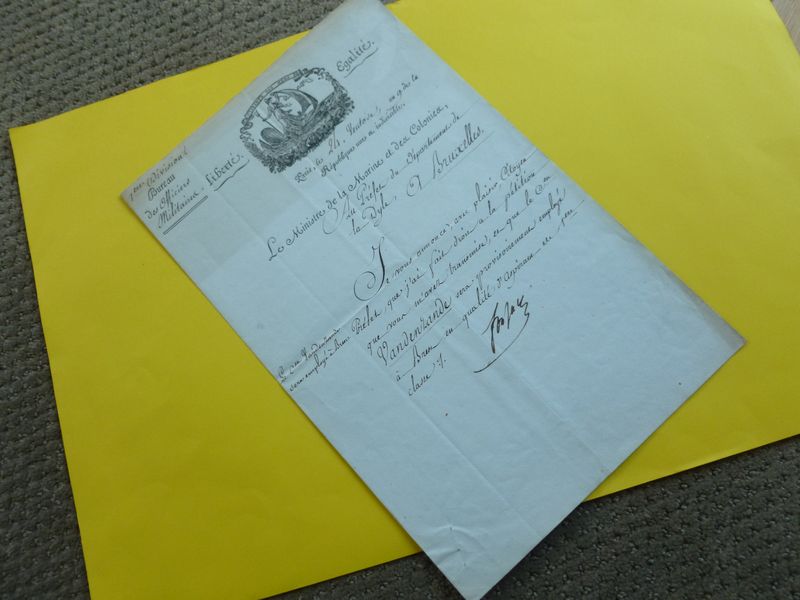 1ere Division
Bureau
des Officiers
Militaires.
Liberté.
Egalité.
Paris, le 24 Ventose, an 9 de la
République une et indivisible.
Le Ministre de la Marine et des Colonies,
Au Préfet du Département de
la Dyle, A Bruxelles.
Je vous annonce, avec plaisir, Citoyen
Préfet, que j'ai fait droit à la pétition
que vous m'avez transmise, et que le Cen
Vandenzande sera provisoirement employé
à Brest en qualité d'Aspirant de 1ere
classe ./.
Le Cen Vandenzande
sera employé à Brest